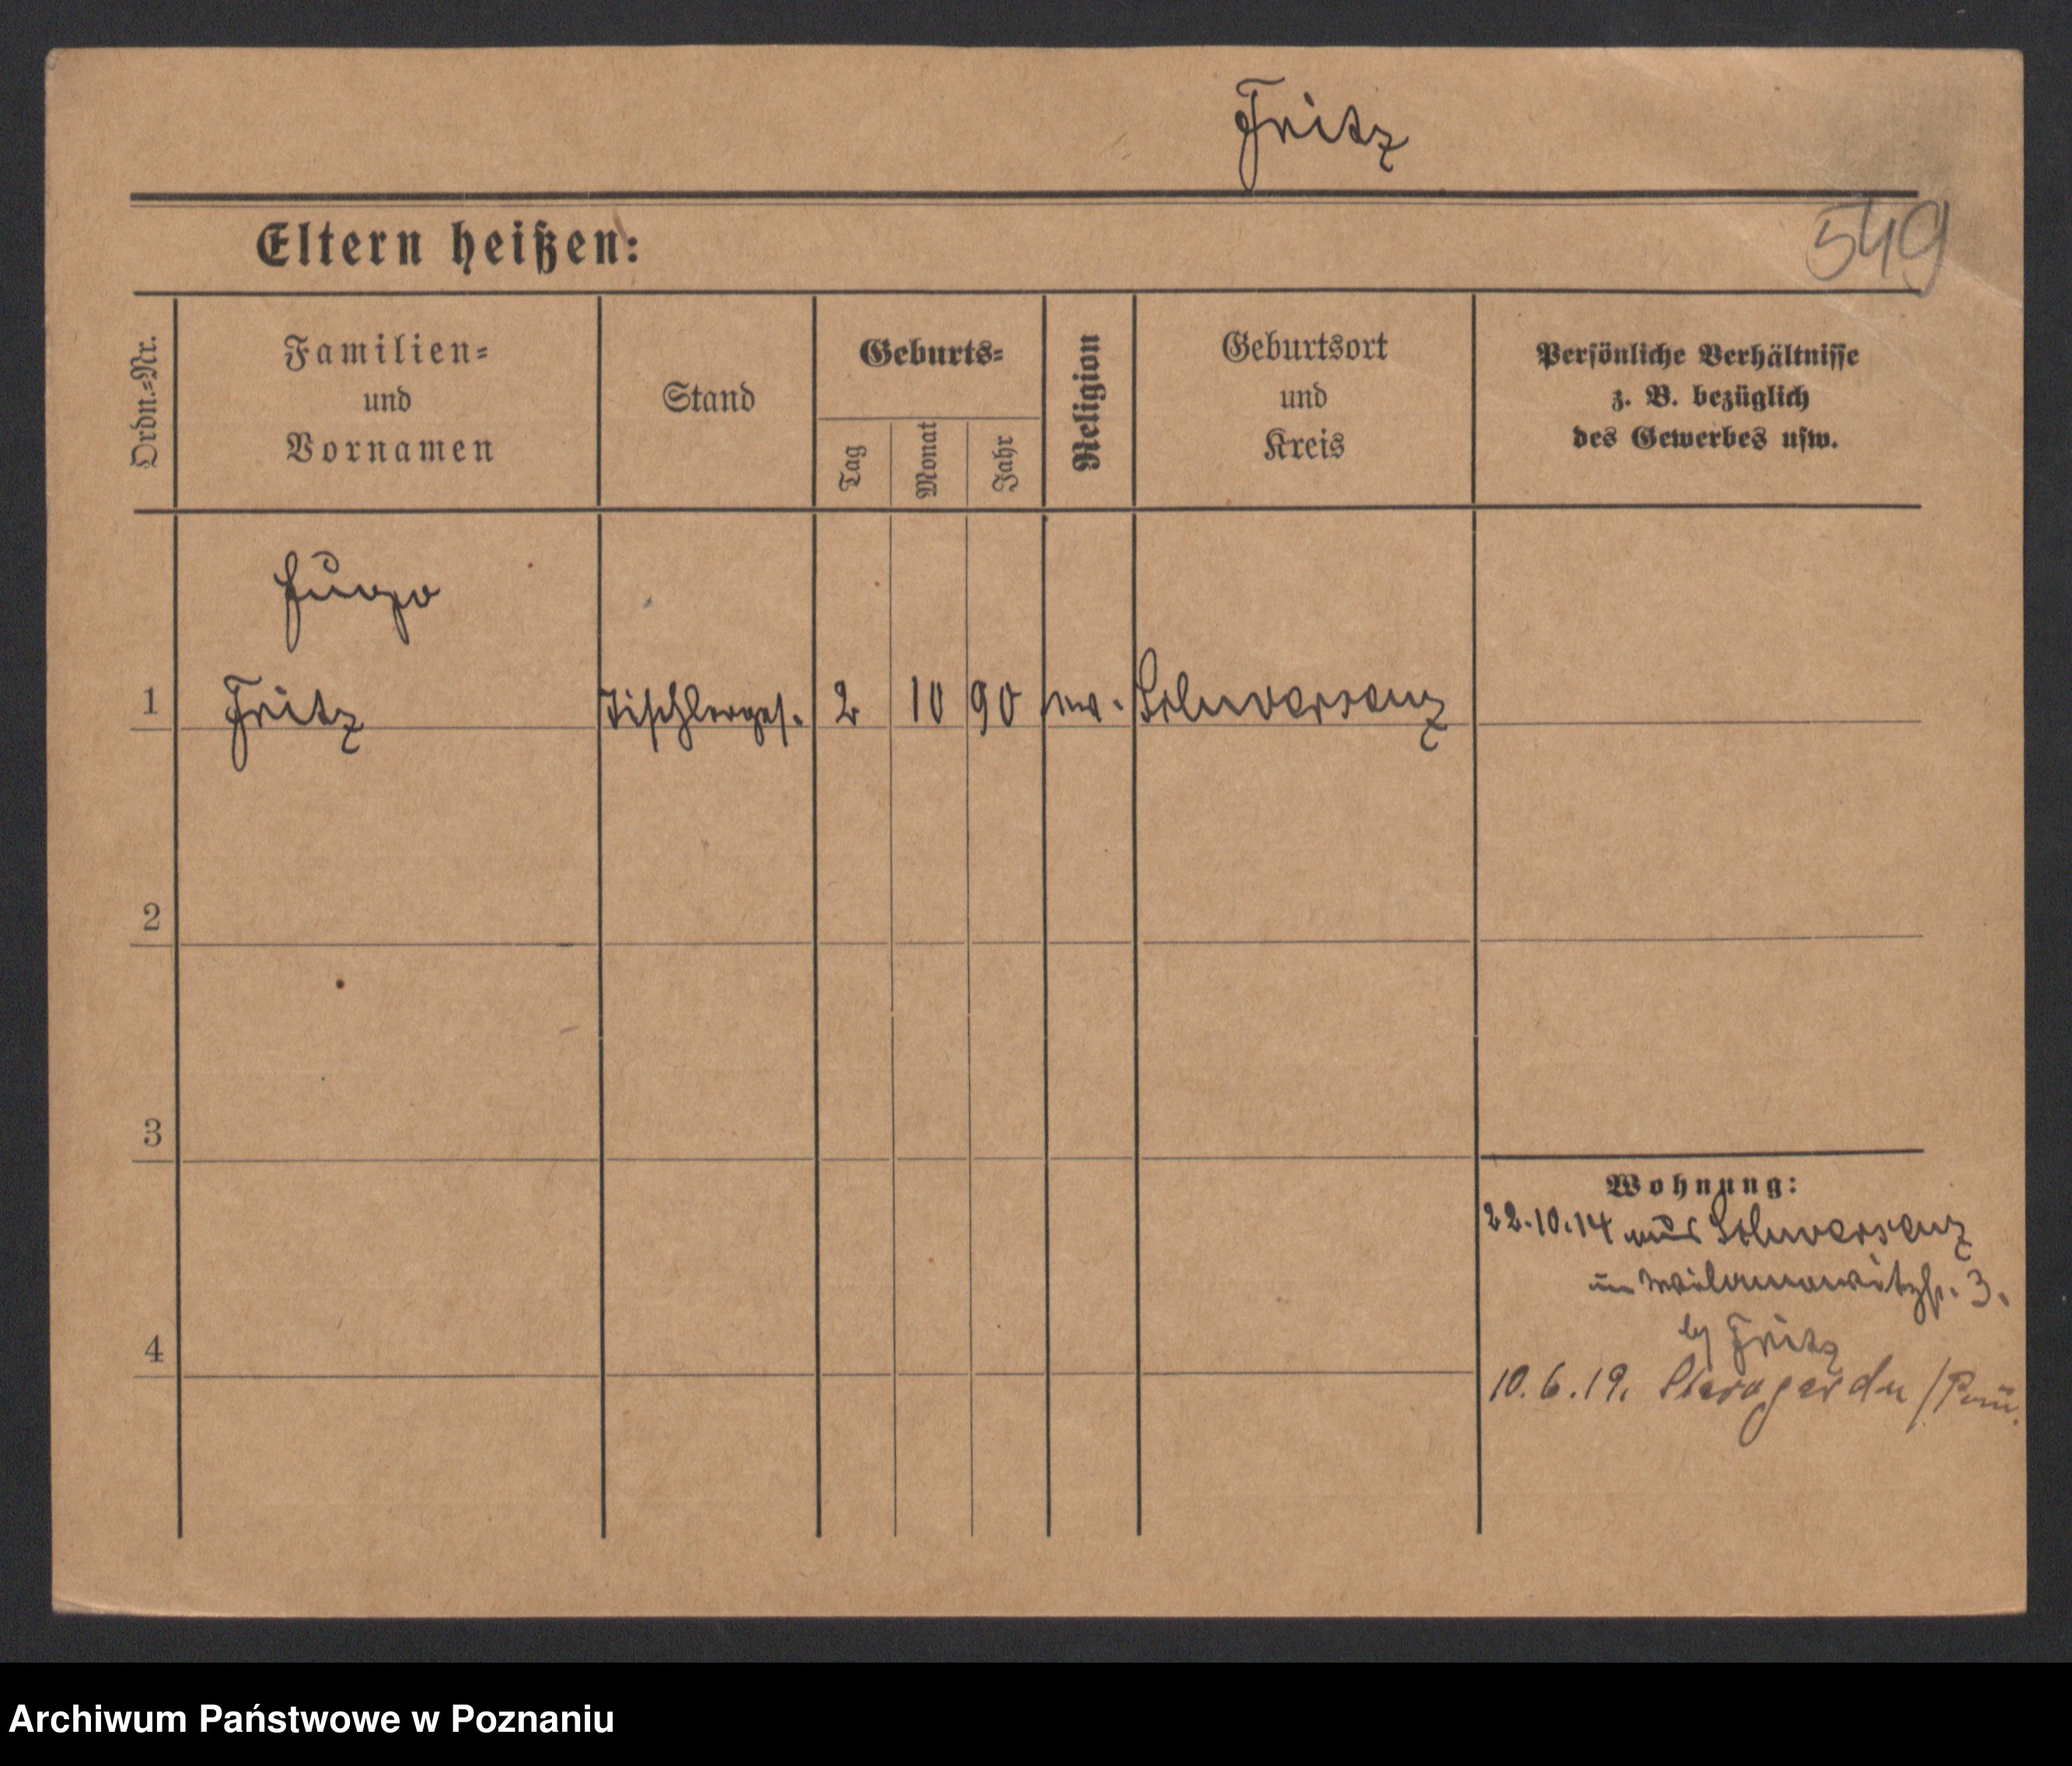 Fritz
Eltern heißen:
549
Ordn.=Nr.
Familien=
und
Vornamen
Stand
Geburts=
Tag
Monat
Jahr
Religion
Geburtsort
und
Kreis
Persönliche Verhältnisse
z. B. bezüglich
des Gewerbes usw.
Hugo
1 Fritz Tischlerges. 2 10 90 ev. Schwersenz
2
3
Wohnung:
22.10.14 aus Schwersenz
in Wilamowitzstr. 3.
bei Fritz
4
10.6.19. Stargard
Archiwum Państwowe w Poznaniu